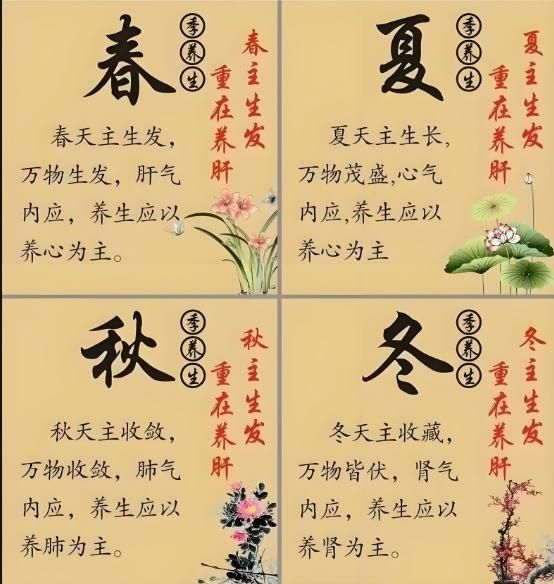 春
季养生
春主生发
重在养肝
春天主生发，
万物生发，肝气
内应，养生应以
养心为主。
夏
季养生
夏主生发
重在养肝
夏天主生长,
万物茂盛,心气
内应,养生应以
养心为主
秋
季养生
秋主生发
重在养肝
秋天主收敛，
万物收敛，肺气
内应，养生应以
养肺为主。
冬
季养生
冬主生发
重在养肝
冬天主收藏，
万物皆伏，肾气
内应，养生应以
养肾为主。